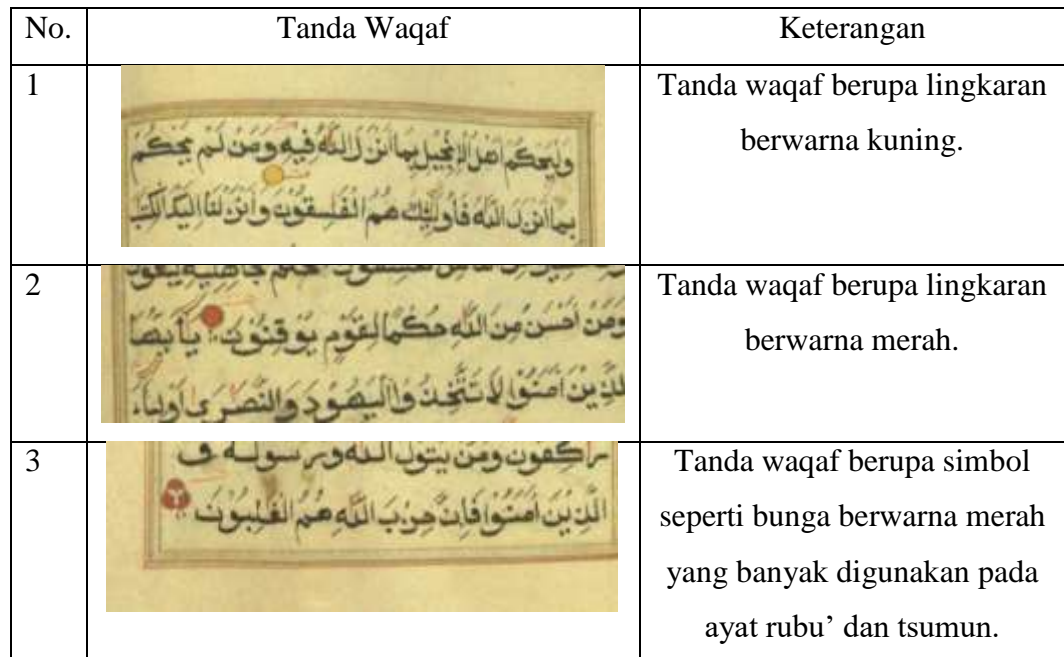 No.
Tanda Waqaf
Keterangan
1
وليحكم اهل الانجيل بما انزل الله فيه ومن لم يحكم
بما انزل الله فأولئك هم الفسقون وأنزلنا اليك الكتب
Tanda waqaf berupa lingkaran
berwarna kuning.
2
ومن احسن من الله حكما لقوم يوقنون يا ايها
الذين امنوا لا تتخذوا اليهود والنصرى اولياء
Tanda waqaf berupa lingkaran
berwarna merah.
3
راكعون ومن يتول الله ورسوله و
الذين امنوا فان حزب الله هم الغلبون
Tanda waqaf berupa simbol
seperti bunga berwarna merah
yang banyak digunakan pada
ayat rubu’ dan tsumun.